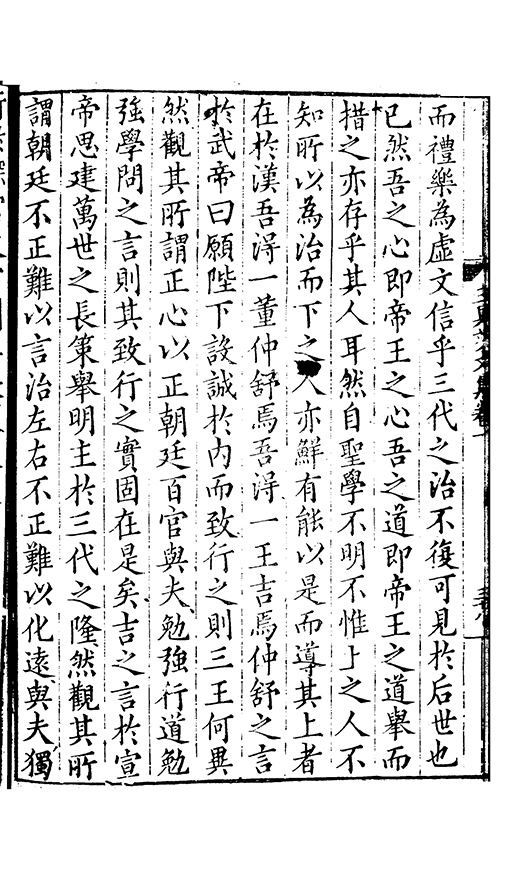 而禮樂為虛文信乎三代之治不復可見於后世也
已然吾之心即帝王之心吾之道即帝王之道舉而
措之亦存乎其人耳然自聖學不明不惟上之人不
知所以為治而下之人亦鮮有能以是而導其上者
在於漢吾得一董仲舒焉吾得一王吉焉仲舒之言
於武帝曰願陛下設誠於內而致行之則三王何異
然觀其所謂正心以正朝廷百官與夫勉強行道勉
強學問之言則其致行之實固在是矣吉之言於宣
帝思建萬世之長策舉明主於三代之隆然觀其所
謂朝廷不正難以言治左右不正難以化遠與夫獨